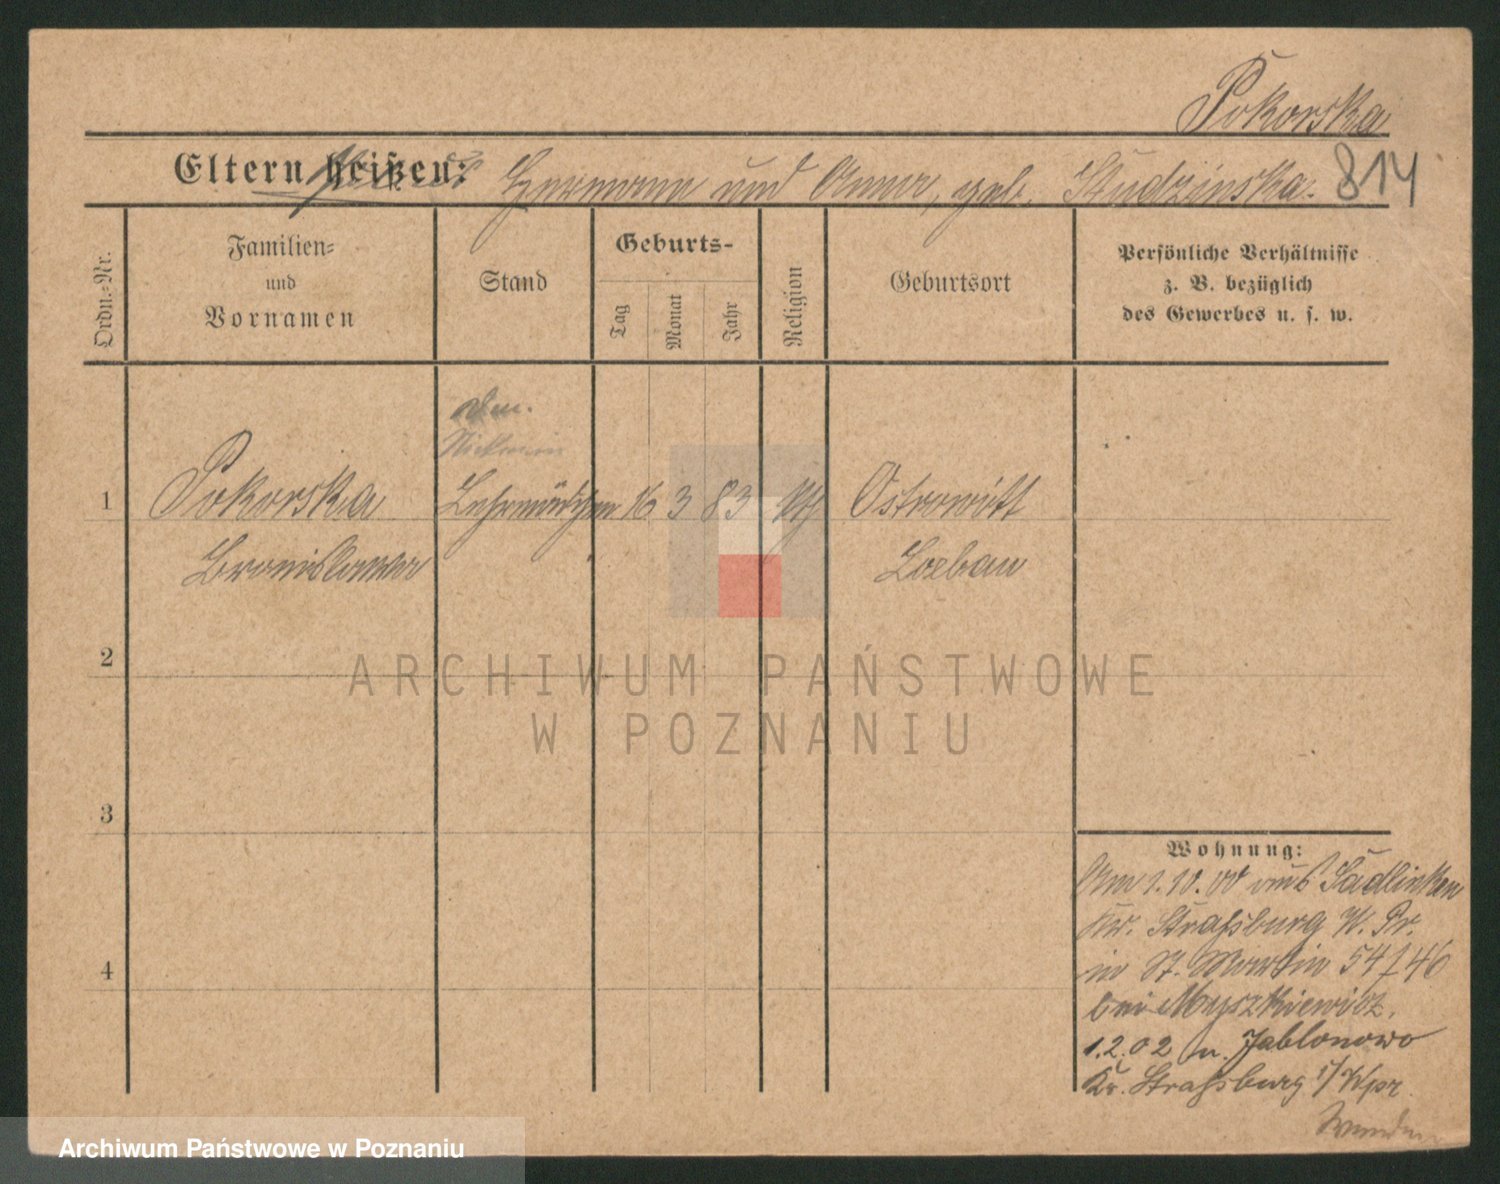 Pokorska
Eltern heißen: Hermann und Anna, geb. Studzinska.
814
Ordn.-Nr.
Familien-
und
Vornamen
Stand
Geburts-
Tag
Monat
Jahr
Religion
Geburtsort
Persönliche Verhältnisse
z. B. bezüglich
des Gewerbes u. s. w.
1
Pokorska
Lehrmädchen
16
3
83
Ostrowitt
Bronislawa
Loebau
2
ARCHIWUM PAŃSTWOWE
W POZNANIU
3
4
Wohnung:
Am 1.10.00 aus Sadlinken
Kr. Straßburg W. Pr.
in St. Martin 54/46
bei Myszkiewicz.
1.2.02 n. Jablonowo
Kr. Straßburg i/Wpr.
Wenden
Archiwum Państwowe w Poznaniu